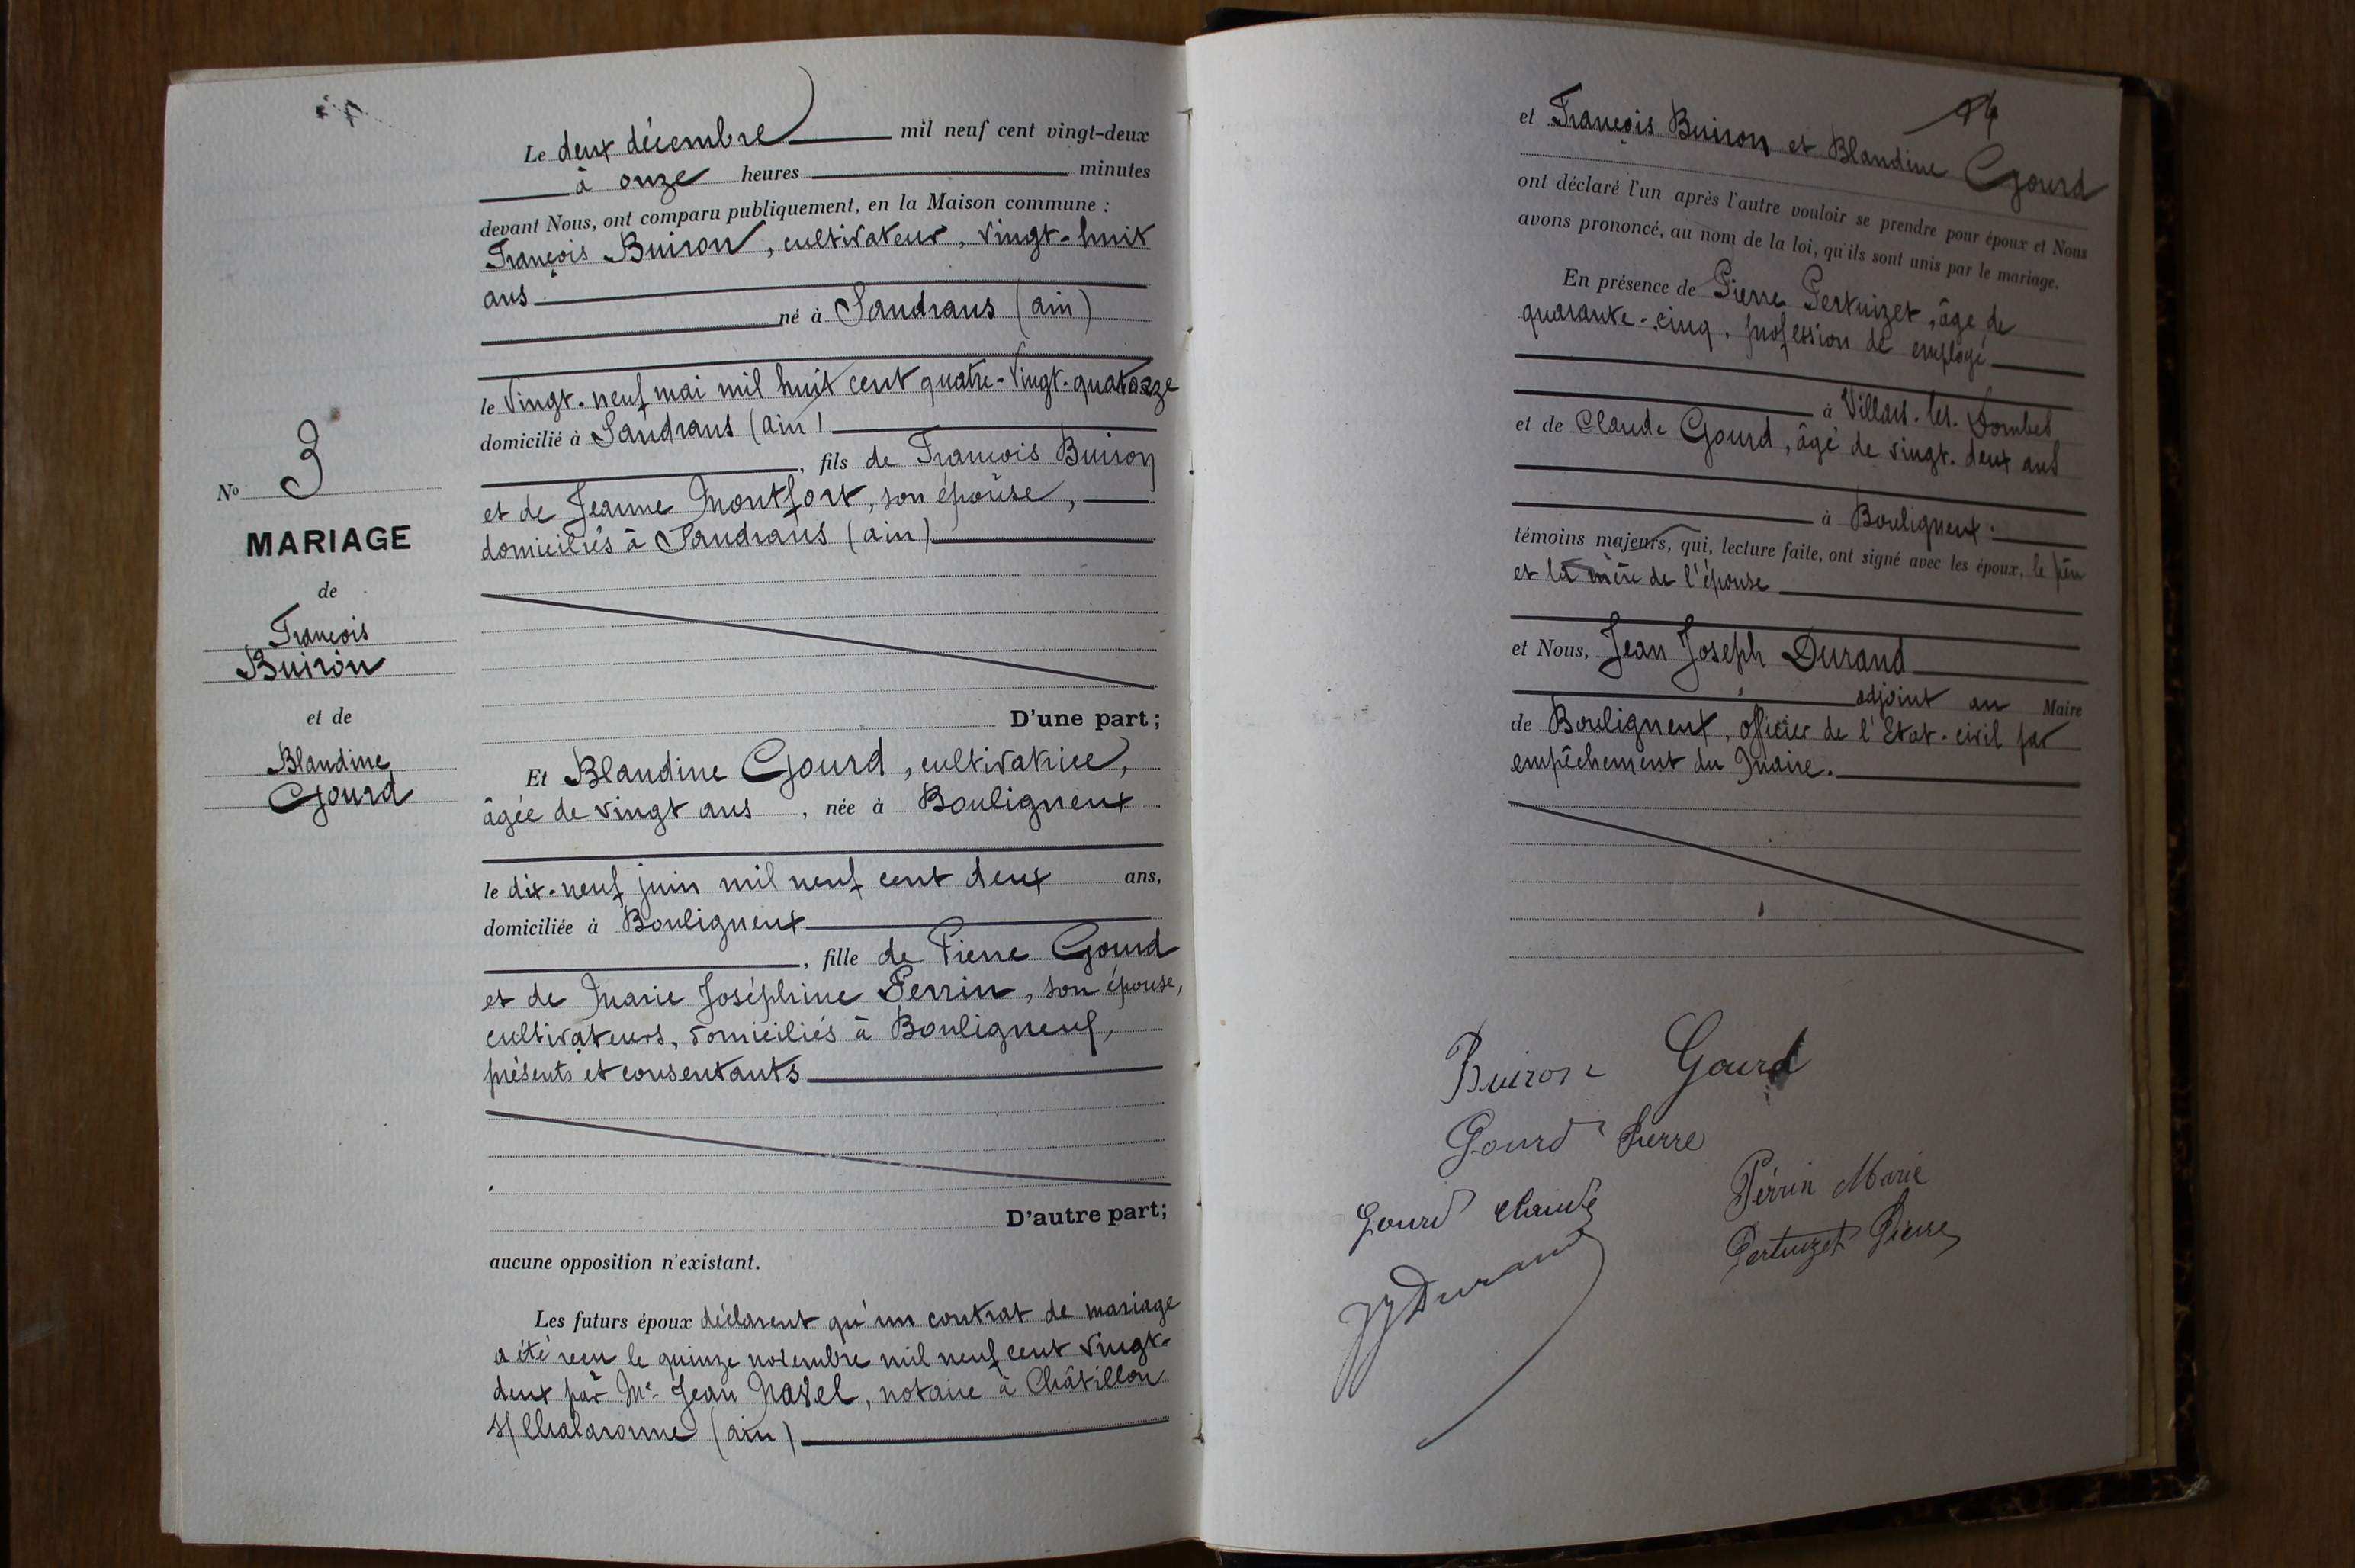 Le deux décembre mil neuf cent vingt-deux
à onze heures minutes
devant Nous, ont comparu publiquement, en la Maison commune :
François Buiron, cultivateur, vingt-huit
ans
né à Sandrans (ain)
le vingt-neuf mai mil huit cent quatre-vingt-quatorze
domicilié à Sandrans (ain)
, fils de François Buiron
et de Jeanne Montfort, son épouse,
domiciliés à Sandrans (ain)
No 3
MARIAGE
de
François
Buiron
et de
Blandine
Gourd
D'une part;
Et Blandine Gourd, cultivatrice,
âgée de vingt ans, née à Bouligneux
le dix-neuf juin mil neuf cent deux ans,
domiciliée à Bouligneux
, fille de Pierre Gourd
et de Marie Joséphine Perrin, son épouse,
cultivateurs, domiciliés à Bouligneux,
présents et consentants
D'autre part;
aucune opposition n'existant.
Les futurs époux déclarent qu'un contrat de mariage
a été reçu le quinze novembre mil neuf cent vingt-
deux par Me Jean Navel, notaire à Châtillon
s/ Chalaronne (ain)
et François Buiron et Blandine Gourd
ont déclaré l'un après l'autre vouloir se prendre pour époux et Nous
avons prononcé, au nom de la loi, qu'ils sont unis par le mariage.
En présence de Pierre Pertuizet, âge de
quarante-cinq, profession de employé
à Villars-les-Dombes
et de Claude Gourd, âgé de vingt-deux ans
à Bouligneux.
témoins majeurs, qui, lecture faite, ont signé avec les époux, le père
et la mère de l'épouse
et Nous, Jean Joseph Durand
adjoint au Maire
de Bouligneux, officier de l'Etat-civil par
empêchement du Maire.
Buiron Gourd
Gourd Pierre
Perrin Marie
Gourd Claude
Pertuizet Pierre
JJ Durand